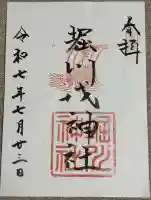 奉拝
堀川戎神社
令和七年七月廿三日